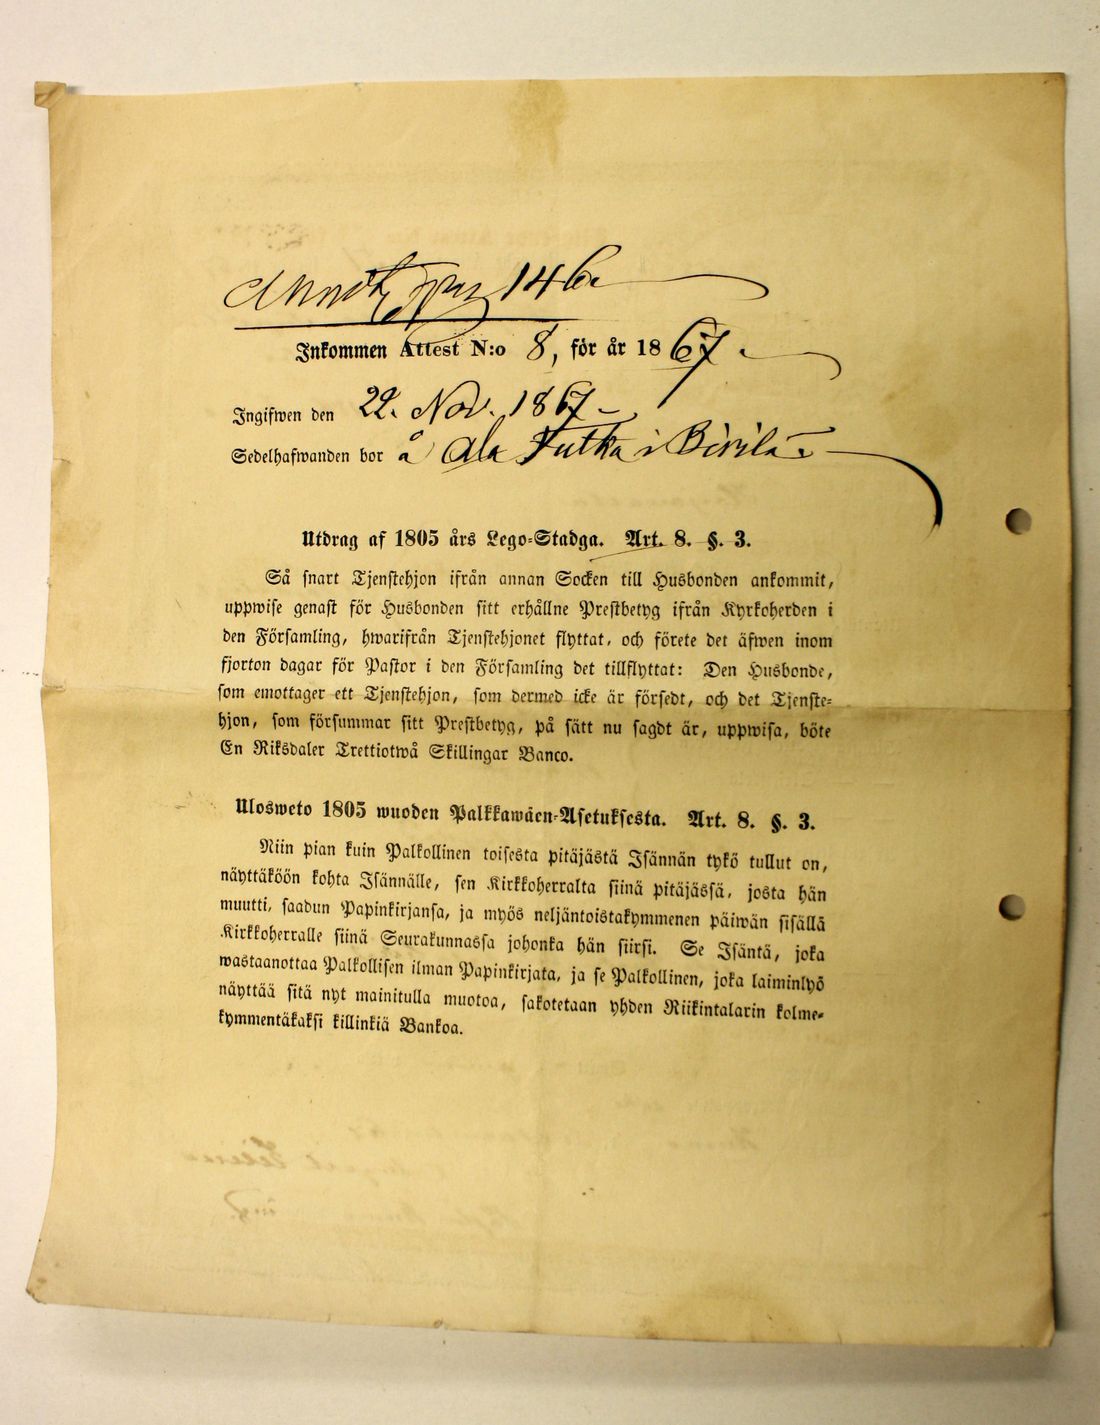 Annot. pag 146.
Inkommen Attest N:o 8, för år 1867.
Ingifwen den 22. Nov. 1867
Sedelhafwanden bor å Ala Tutka i Birila
Utdrag af 1805 års Lego-Stadga. Art. 8. §. 3.
Så snart Tjenstehjon ifrån annan Socken till Husbonden ankommit,
uppwise genast för Husbonden sitt erhållne Prestbetyg ifrån Kyrkoherden i
den Församling, hwarifrån Tjenstehjonet flyttat, och förete det äfwen inom
fjorton dagar för Pastor i den Församling det tillflyttat: Den Husbonde,
som emottager ett Tjenstehjon, som dermed icke är försedt, och det Tjenste-
hjon, som försummar sitt Prestbetyg, på sätt nu sagdt är, uppwisa, böte
En Riksdaler Trettiotwå Skillingar Banco.
Ulosweto 1805 wuoden Palkkawäen-Asetuksesta. Art. 8. §. 3.
Niin pian kuin Palkollinen toisesta pitäjästä Isännän tykö tullut on,
näyttäköön kohta Isännälle, sen Kirkkoherralta siinä pitäjässä, josta hän
muutti, saadun Papinkirjansa, ja myös neljäntoistakymmenen päiwän sisällä
Kirkkoherralle siinä Seurakunnassa johonka hän siirsi. Se Isäntä, joka
wastaanottaa Palkollisen ilman Papinkirjata, ja se Palkollinen, joka laiminlyö
näyttää sitä nyt mainitulla muotoa, sakotetaan yhden Riikintalarin kolme-
kymmentäkaksi killinkiä Bankoa.